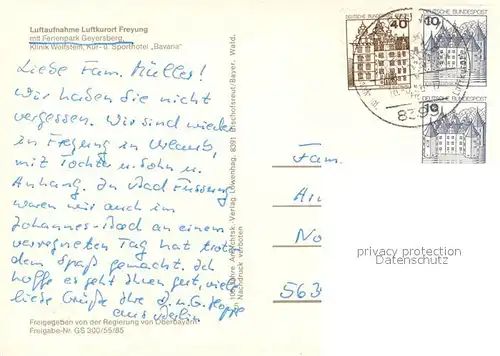 Luftaufnahme Luftkurort Freyung
mit Ferienpark Geyersberg,
Klinik Wolfstein, Kur- u. Sporthotel „Bavaria"
Liebe Fam. Müller!
Wir haben Sie nicht
vergessen. Wir sind wieder
in Freyung in Urlaub,
mit Tochter u. Sohn u.
Anhang. In Bad Füssing
waren wir auch im
Johannes-Bad an einem
verregneten Tag hat trotz
dem Spaß gemacht. Ich
hoffe es geht Ihnen gut, viele
liebe Grüße Ihre
aus Berlin
Freigegeben von der Regierung von Oberbayern
Freigabe-Nr. GS 300/55/85
100 Jahre Ansichtsk.-Verlag Löwenhag, 8391 Bischofsreut/Bayer. Wald.
Nachdruck verboten
40
DEUTSCHE BUNDESPOST
10
DEUTSCHE BUNDESPOST
10
839
Fam.
No
563
privacy protection
Datenschutz